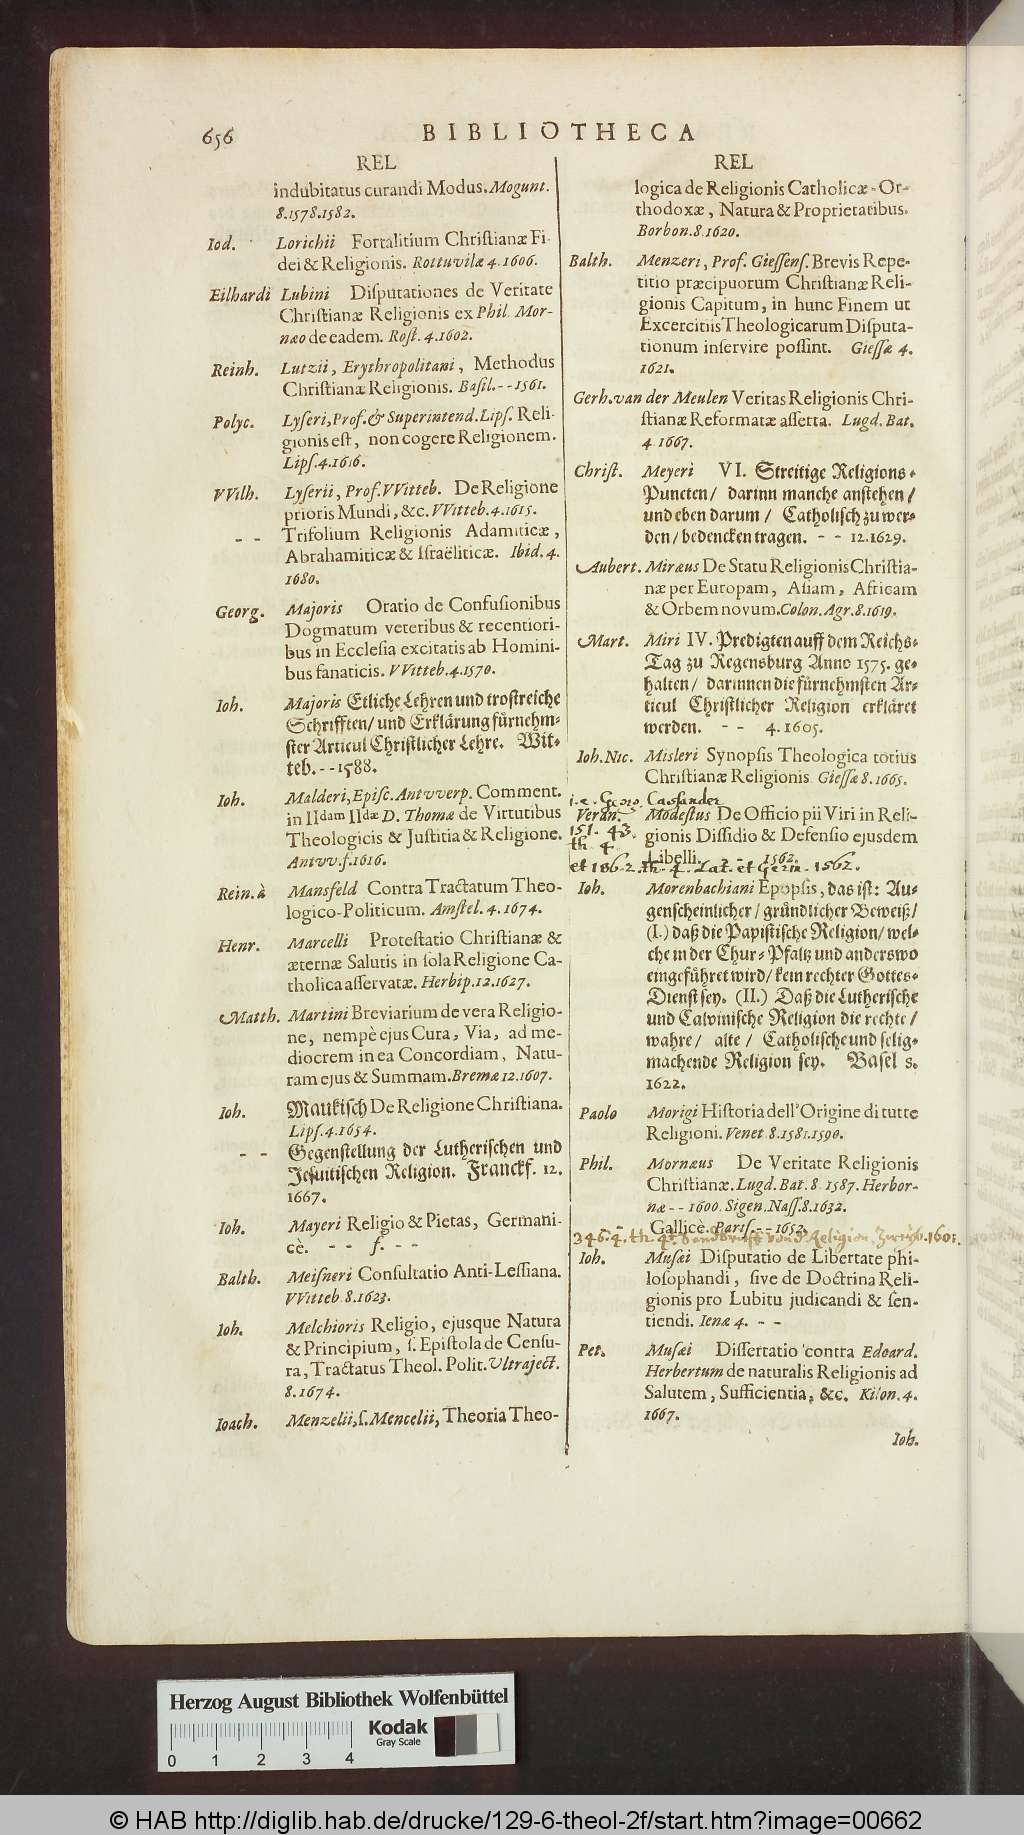 656
BIBLIOTHECA
REL
indubitatus curandi Modus. Mogunt.
8.1578.1582.
Iod. Lorichii Fortalitium Christianæ Fi-
dei & Religionis. Rottuvilæ 4.1606.
Eilhardi Lubini Disputationes de Veritate
Christianæ Religionis ex Phil. Mor-
næo de eadem. Rost. 4.1602.
Reinh. Lutzii, Erythropolitani, Methodus
Christianæ Religionis. Basil. - - 1561.
Polyc. Lyseri, Prof. & Superintend. Lips. Reli-
gionis est, non cogere Religionem.
Lips. 4.1616.
VVilh. Lyserii, Prof. VVitteb. De Religione
prioris Mundi, &c. VVitteb. 4.1615.
- - Trifolium Religionis Adamiticæ,
Abrahamiticæ & Israëliticæ. Ibid. 4.
1680.
Georg. Majoris Oratio de Confusionibus
Dogmatum veteribus & recentiori-
bus in Ecclesia excitatis ab Homini-
bus fanaticis. VVitteb. 4.1570.
Ioh. Majoris Etliche Lehren und trostreiche
Schrifften/ und Erklärung fürnehm-
ster Articul Christlicher Lehre. Wit-
teb. - - 1588.
Ioh. Malderi, Episc. Antvverp. Comment.
in IIdam IIdæ D. Thomæ de Virtutibus
Theologicis & Justitia & Religione.
Antvv. f. 1616.
Rein. à Mansfeld Contra Tractatum Theo-
logico-Politicum. Amstel. 4.1674.
Henr. Marcelli Protestatio Christianæ &
æternæ Salutis in sola Religione Ca-
tholica asservatæ. Herbip. 12.1627.
Matth. Martini Breviarium de vera Religio-
ne, nempè ejus Cura, Via, ad me-
diocrem in ea Concordiam, Natu-
ram ejus & Summam. Bremæ 12.1607.
Ioh. Maukisch De Religione Christiana.
Lips. 4.1654.
- - Gegenstellung der Lutherischen und
Jesuitischen Religion. Franckf. 12.
1667.
Ioh. Mayeri Religio & Pietas, Germani-
cè. - - f. - -
Balth. Meisneri Consultatio Anti-Lessiana.
VVitteb. 8.1623.
Ioh. Melchioris Religio, ejusque Natura
& Principium, s. Epistola de Censu-
ra, Tractatus Theol. Polit. Ultraject.
8.1674.
Ioach. Menzelii, s. Mencelii, Theoria Theo-
REL
logica de Religionis Catholicæ-Or-
thodoxæ, Natura & Proprietatibus.
Borbon. 8.1620.
Balth. Menzeri, Prof. Giessens. Brevis Repe-
titio præcipuorum Christianæ Reli-
gionis Capitum, in hunc Finem ut
Excercitiis Theologicarum Disputa-
tionum inservire possint. Giessæ 4.
1621.
Gerh. van der Meulen Veritas Religionis Chri-
stianæ Reformatæ asserta. Lugd. Bat.
4.1667.
Christ. Meyeri VI. Streitige Religions-
Puncten/ darinn manche anstehen/
und eben darum/ Catholisch zu wer-
den/ bedencken tragen. - - 12.1629.
Aubert. Miræus De Statu Religionis Christia-
næ per Europam, Asiam, Africam
& Orbem novum. Colon. Agr. 8.1619.
Mart. Miri IV. Predigten auff dem Reichs-
Tag zu Regensburg Anno 1575. ge-
halten/ darinnen die fürnehmsten Ar-
ticul Christlicher Religion erkläret
werden. - - 4.1605.
Ioh. Nic. Misleri Synopsis Theologica totius
Christianæ Religionis Giessæ 8.1665.
i.e. Georg. Cassander
Veran. Modestus De Officio pii Viri in Reli-
151. 43. gionis Dissidio & Defensio ejusdem
th. 4. Libelli. - - 1562.
et 186.2. th. 4. Lat. et Germ. 1562.
Ioh. Morenbachiani Epopsis, das ist: Au-
genscheinlicher/ gründlicher Beweiß/
(I.) daß die Papistische Religion/ wel-
che in der Chur-Pfaltz und anderswo
eingeführet wird/ kein rechter Gottes-
Dienst sey. (II.) Daß die Lutherische
und Calvinische Religion die rechte/
wahre/ alte/ Catholische und selig-
machende Religion sey. Basel 8.
1622.
Paolo Morigi Historia dell'Origine di tutte
Religioni. Venet. 8.1581.1590.
Phil. Mornæus De Veritate Religionis
Christianæ. Lugd. Bat. 8. 1587. Herbor-
næ - - 1600. Sigen. Nass. 8.1632.
- - Gallicè. Paris. - - 1652.
346.4. th. 4. Sendbrieff vond Religion 1601.
Ioh. Musæi Disputatio de Libertate phi-
losophandi, sive de Doctrina Reli-
gionis pro Lubitu judicandi & sen-
tiendi. Ienæ 4. - -
Pet. Musæi Dissertatio contra Edoard.
Herbertum de naturalis Religionis ad
Salutem, Sufficientia, &c. Kilon. 4.
1667.
Ioh.
Herzog August Bibliothek Wolfenbüttel
Kodak
Gray Scale
0 1 2 3 4
© HAB http://diglib.hab.de/drucke/129-6-theol-2f/start.htm?image=00662